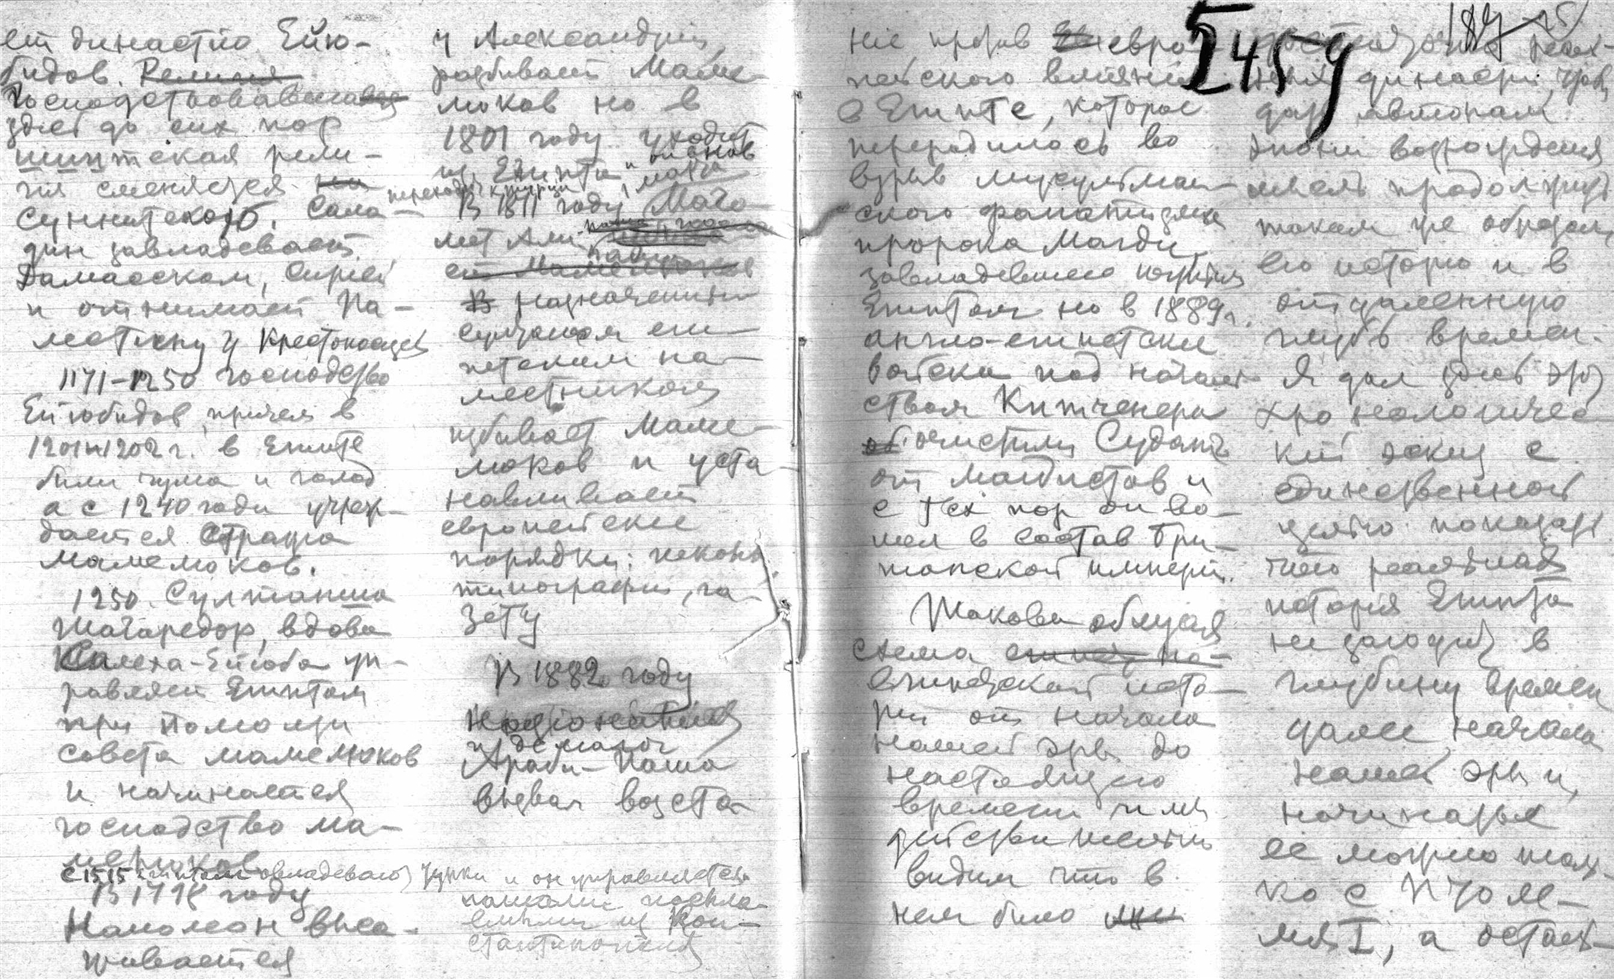 ет династию Ейю-
бидов. Религия
Господствовавшая
здесь до сих пор
шиитская рели-
гия сменяется на
Суннитскою. Сала-
дин завладевает
Дамаском, Сирией
и отнимает Па-
лестину у Крестоносцев
1171-1250 господство
Ейюбидов, причем в
1201-1202 г. в Египте
были чума и голод
а с 1240 года учреж-
дается стража
мамелюков.
1250. Султанша
Шагаредор, вдова
Салеха-Ейюба уп-
равляет Египтом
при помощи
совета мамелюков
и начинается
господство ма-
мелюков
с 1515 Египтом овладевают Турки и он управляется
пашами посыла-
емыми из Кон-
стантинополя
В 1798 году
Наполеон выса-
живается
у Александрии,
разбивает Маме-
люков но в
1801 году уходит
из Египта и он снова
переходит к Турции
В 1811 году Маго-
мет Али
паша
ей Мамелюков
В назначенный
султаном еги-
петским на-
местником
избивает Маме-
люков и уста-
навливает
европейские
порядки:
типографии, га-
зету
В 1882 году
Националист
Араби-Паша
вызвал восста-
ние против евро-
пейского влияния
в Египте, которое
переродилось во
взрыв мусульман-
ского фанатизма
пророка Магди
завладевшего
Египтом но в 1889 г.
англо-египетские
войска под началь-
ством Китченера
очистили Судан
от Магдистов и
с тех пор он во-
шел в состав Бри-
танской империи.
Такова общая
схема
египетской исто-
рии от начала
нашей эры до
настоящего
времени и мы
действительно
видим что в
нем было
2459
187
дали авторам
эпохи возрождения
мысль продолжить
таким же образом
его историю и в
отдаленную
глубь времен.
Я дал здесь этот
хронологичес-
кий эскиз с
единственной
целью показать
что реальная
история Египта
не заходит в
глубину времен
далее начала
нашей эры и,
начинать
ее можно толь-
ко с Птоле-
мея I, а осталь-